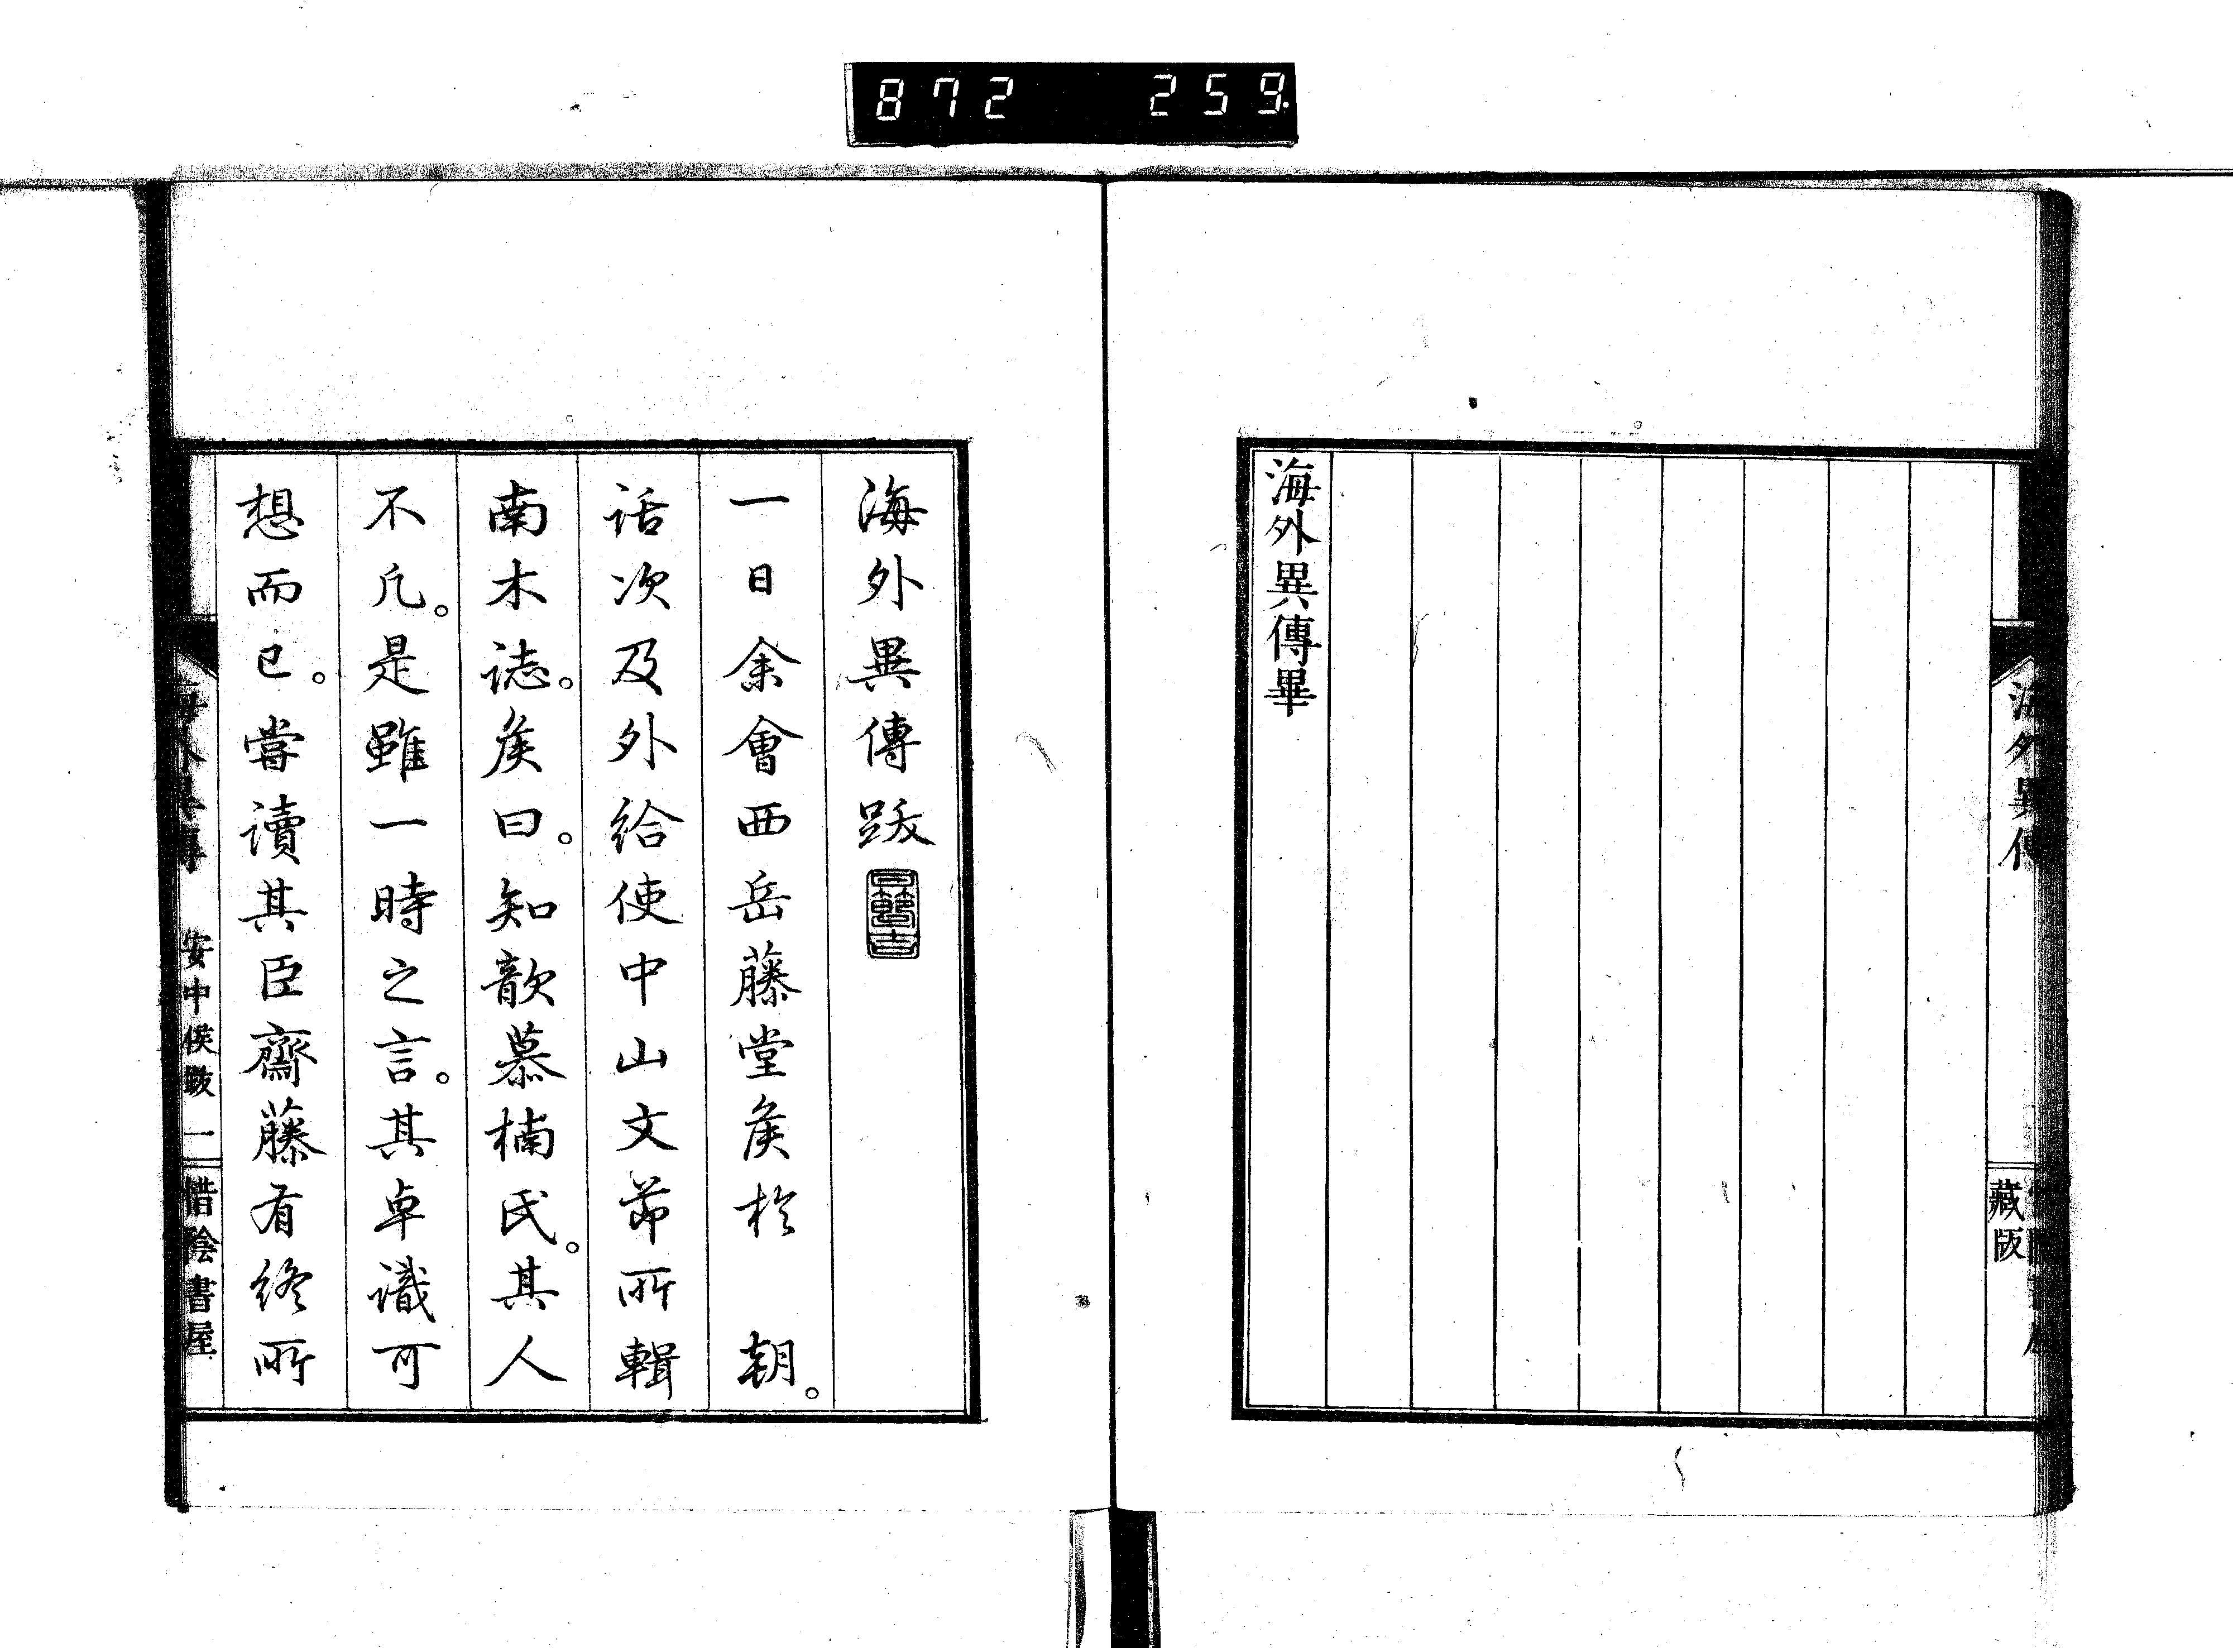 872 259
海外異傳畢
海外異傳
藏版
海外異傳跋
一日余會西岳藤堂矦於　朝。
話次及外給使中山文節所輯
南木誌。矦曰。知歆慕楠氏。其人
不凢。是雖一時之言。其卓識可
想而已。嘗讀其臣齋藤有終所
海外異傳　安中侯跋　一　惜陰書屋